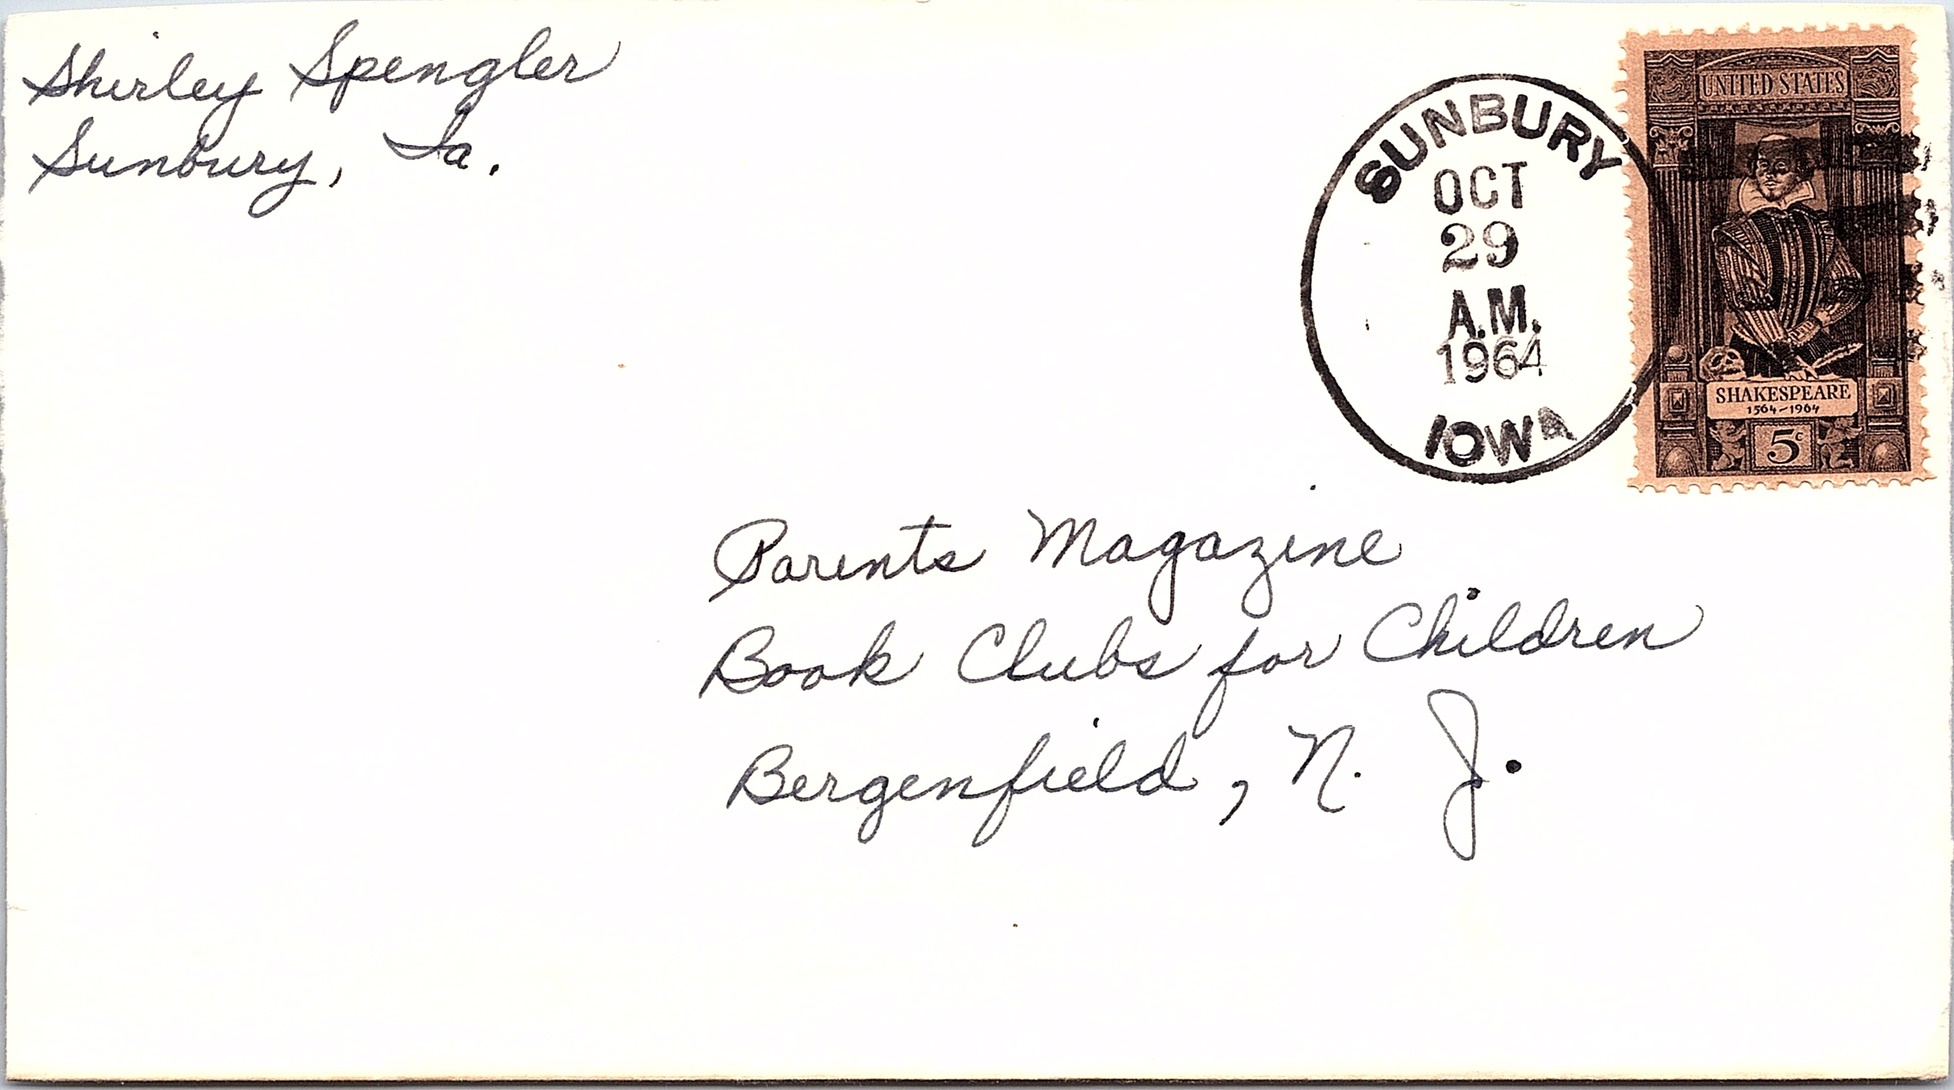 Shirley Spengler
Sunbury, Ia.
SUNBURY
OCT
29
A.M.
1964
IOWA
UNITED STATES
SHAKESPEARE
1564-1964
5c
Parents Magazine
Book Clubs for Children
Bergenfield, N. J.